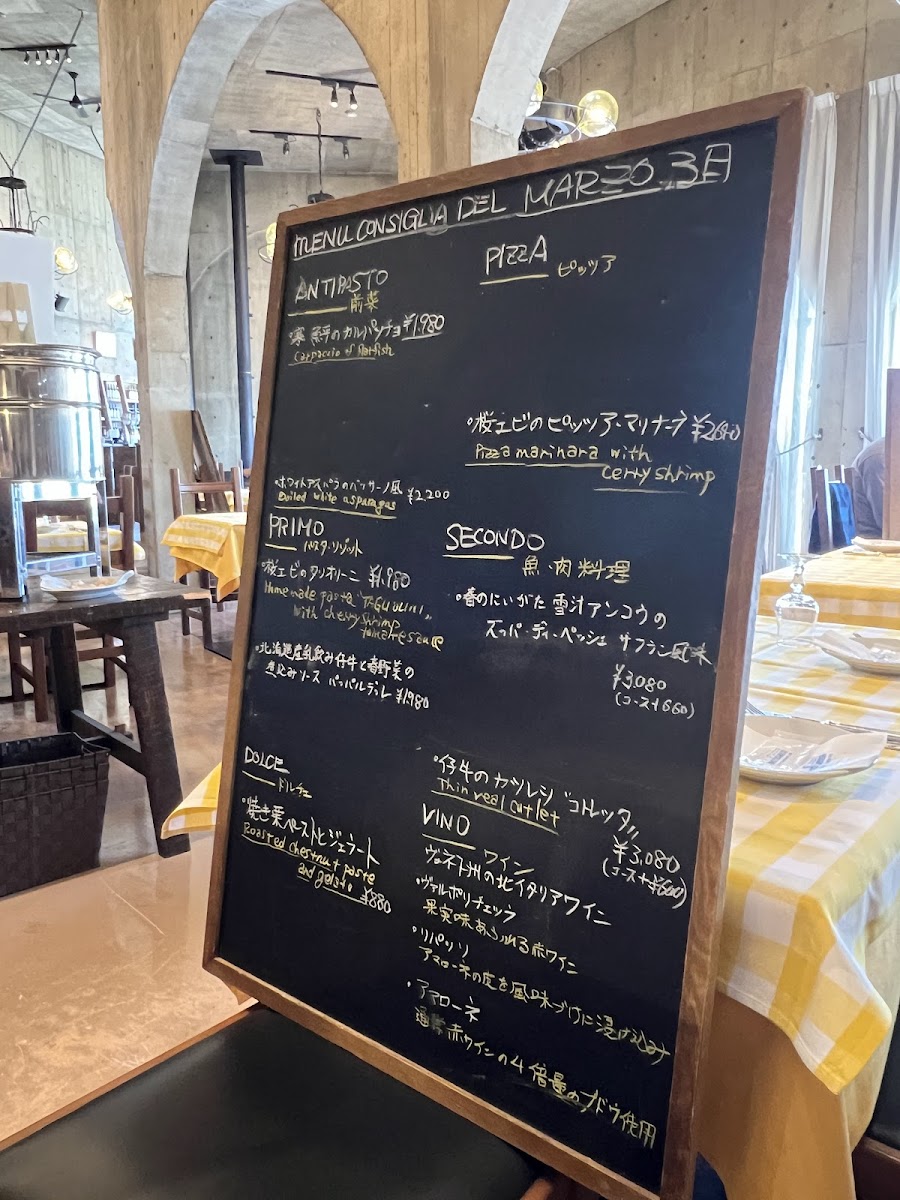 MENU CONSIGLIA DEL MARZO 3月
ANTIPASTO
前菜
・寒鮃のカルパッチョ ¥1,980
Carpaccio of flatfish
・ホワイトアスパラのバッサーノ風
Boiled white asparagus ¥2,200
PRIMO
パスタ・リゾット
・桜エビのタリオリーニ ¥1,980
Homemade pasta "TAGLIOLINI"
with cherry shrimp
tomato sauce
・北海道産乳飲み仔牛と春野菜の
煮込みソース パッパルデッレ ¥1,980
DOLCE
ドルチェ
・焼き栗ペーストとジェラート
Roasted chestnut paste
and gelato ¥880
PIZZA
ピッツァ
・桜エビのピッツァ・マリナーラ
Pizza marinara with
cerry shrimp
SECONDO
魚・肉料理
・春のにいがた 雪汁アンコウの
ズッパ・ディ・ペッシェ サフラン風味
¥3,080
(コース+660)
・仔牛のカツレツ"コトレッタ"
Thin veal cutlet
¥3,080
(コース+¥660)
VINO
ワイン
ヴェネト州の北イタリアワイン
・ヴァルポリチェッラ
果実味あふれる赤ワイン
・リパッソ
アマローネの皮を風味づけに浸け込み
・アマローネ
通常赤ワインの4倍量のブドウ使用